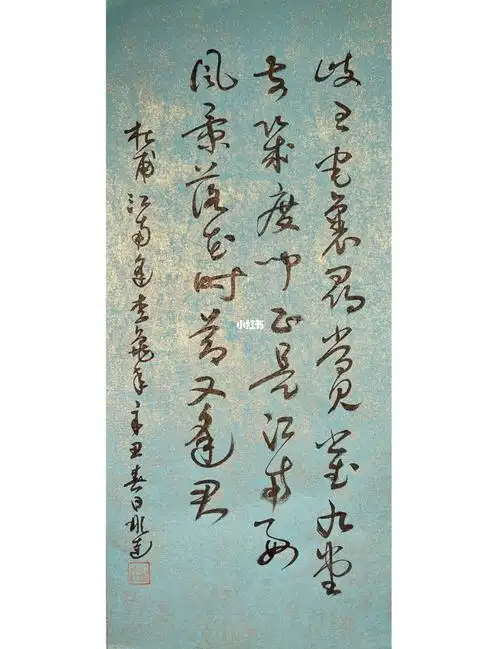 岐王宅裏尋常見崔九堂
前幾度聞正是江南好
風景落花时節又逢君
杜甫江南逢李龜年辛丑春日
小红书